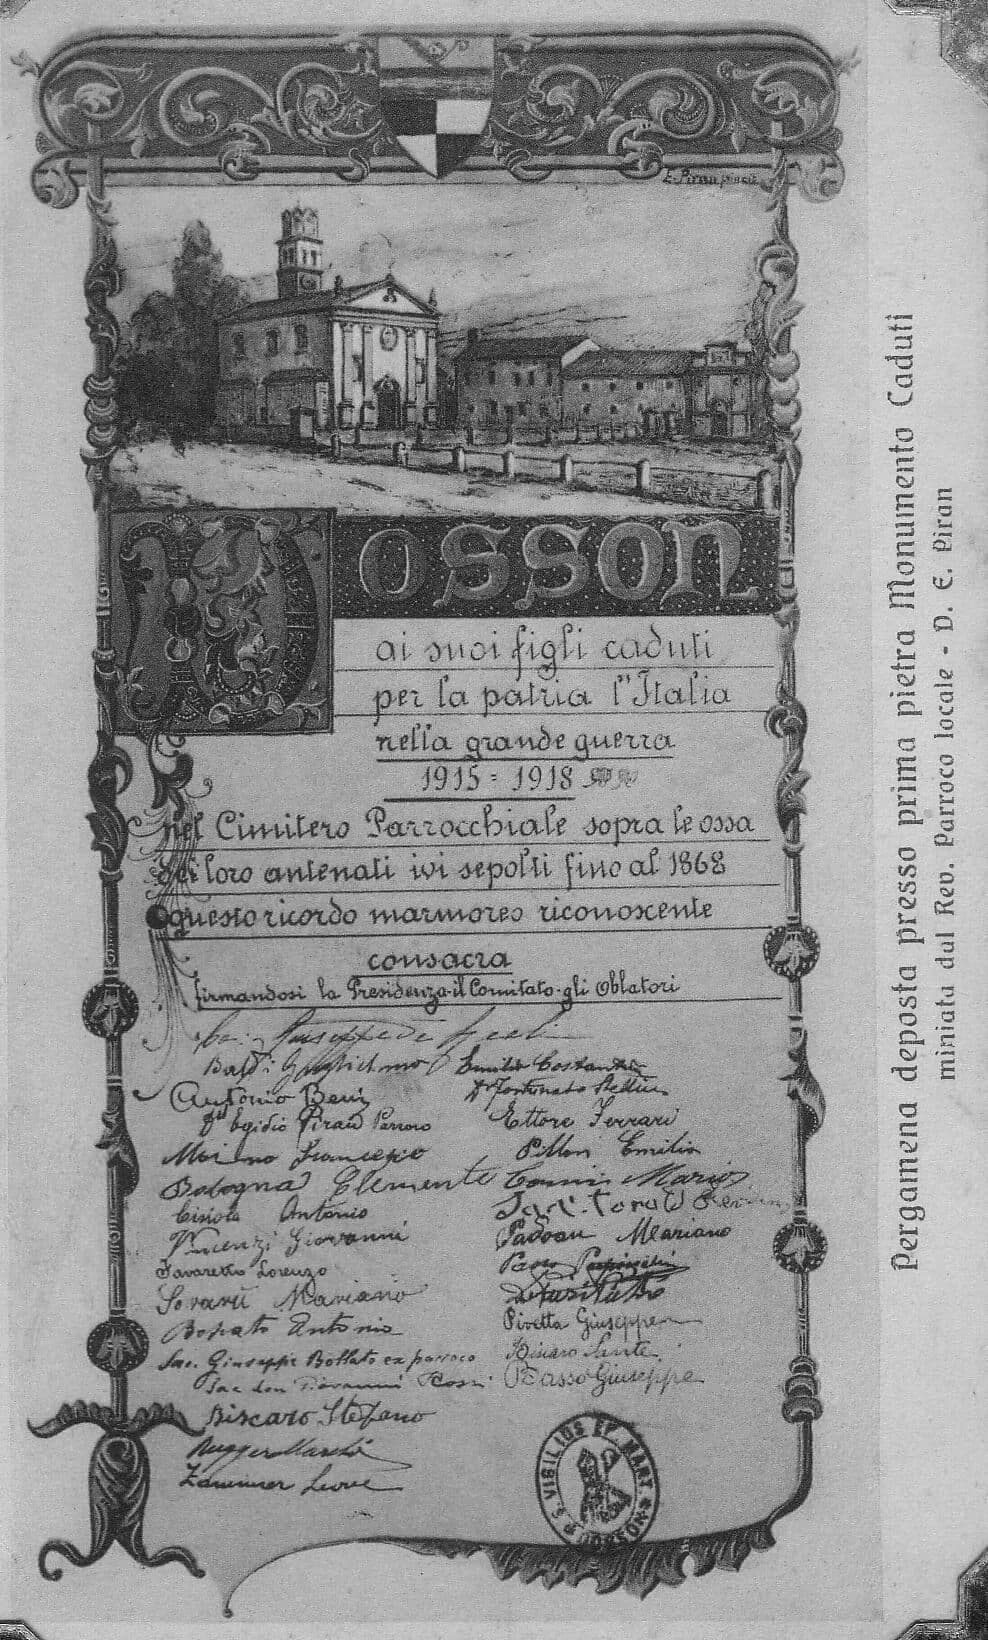 E. Piran pinxit
DOSSON
ai suoi figli caduti
per la patria l'Italia
nella grande guerra
1915 = 1918
nel Cimitero Parrocchiale sopra le ossa
dei loro antenati ivi sepolti fino al 1868
questo ricordo marmoreo riconoscente
consacra
firmandosi la Presidenza-il Comitato-gli Oblatori
Giuseppe de
Baldi Guglielmo
Antonio Beni
Dn Egidio Piran Parroco
Francesco
Bologna Clemente
Antonio
Vincenzi Giovanni
Favaretto Lorenzo
Soravii Mariano
Bonato Antonio
Sac. Giuseppe Bottato ex parroco
Sac don Giovanni Rossi
Biscaro Stefano
Zammer
Emilio Costantini
Dr Fortunato
Ettore Ferrari
Pillon Emilio
Comin Mario
Padoan Mariano
Pivetta Giuseppe
Sante
Basso Giuseppe
S. VIGILIUS EP. MART. DOSSON
Pergamena deposta presso prima pietra Monumento Caduti
miniata dal Rev. Parroco locale - D. E. Piran